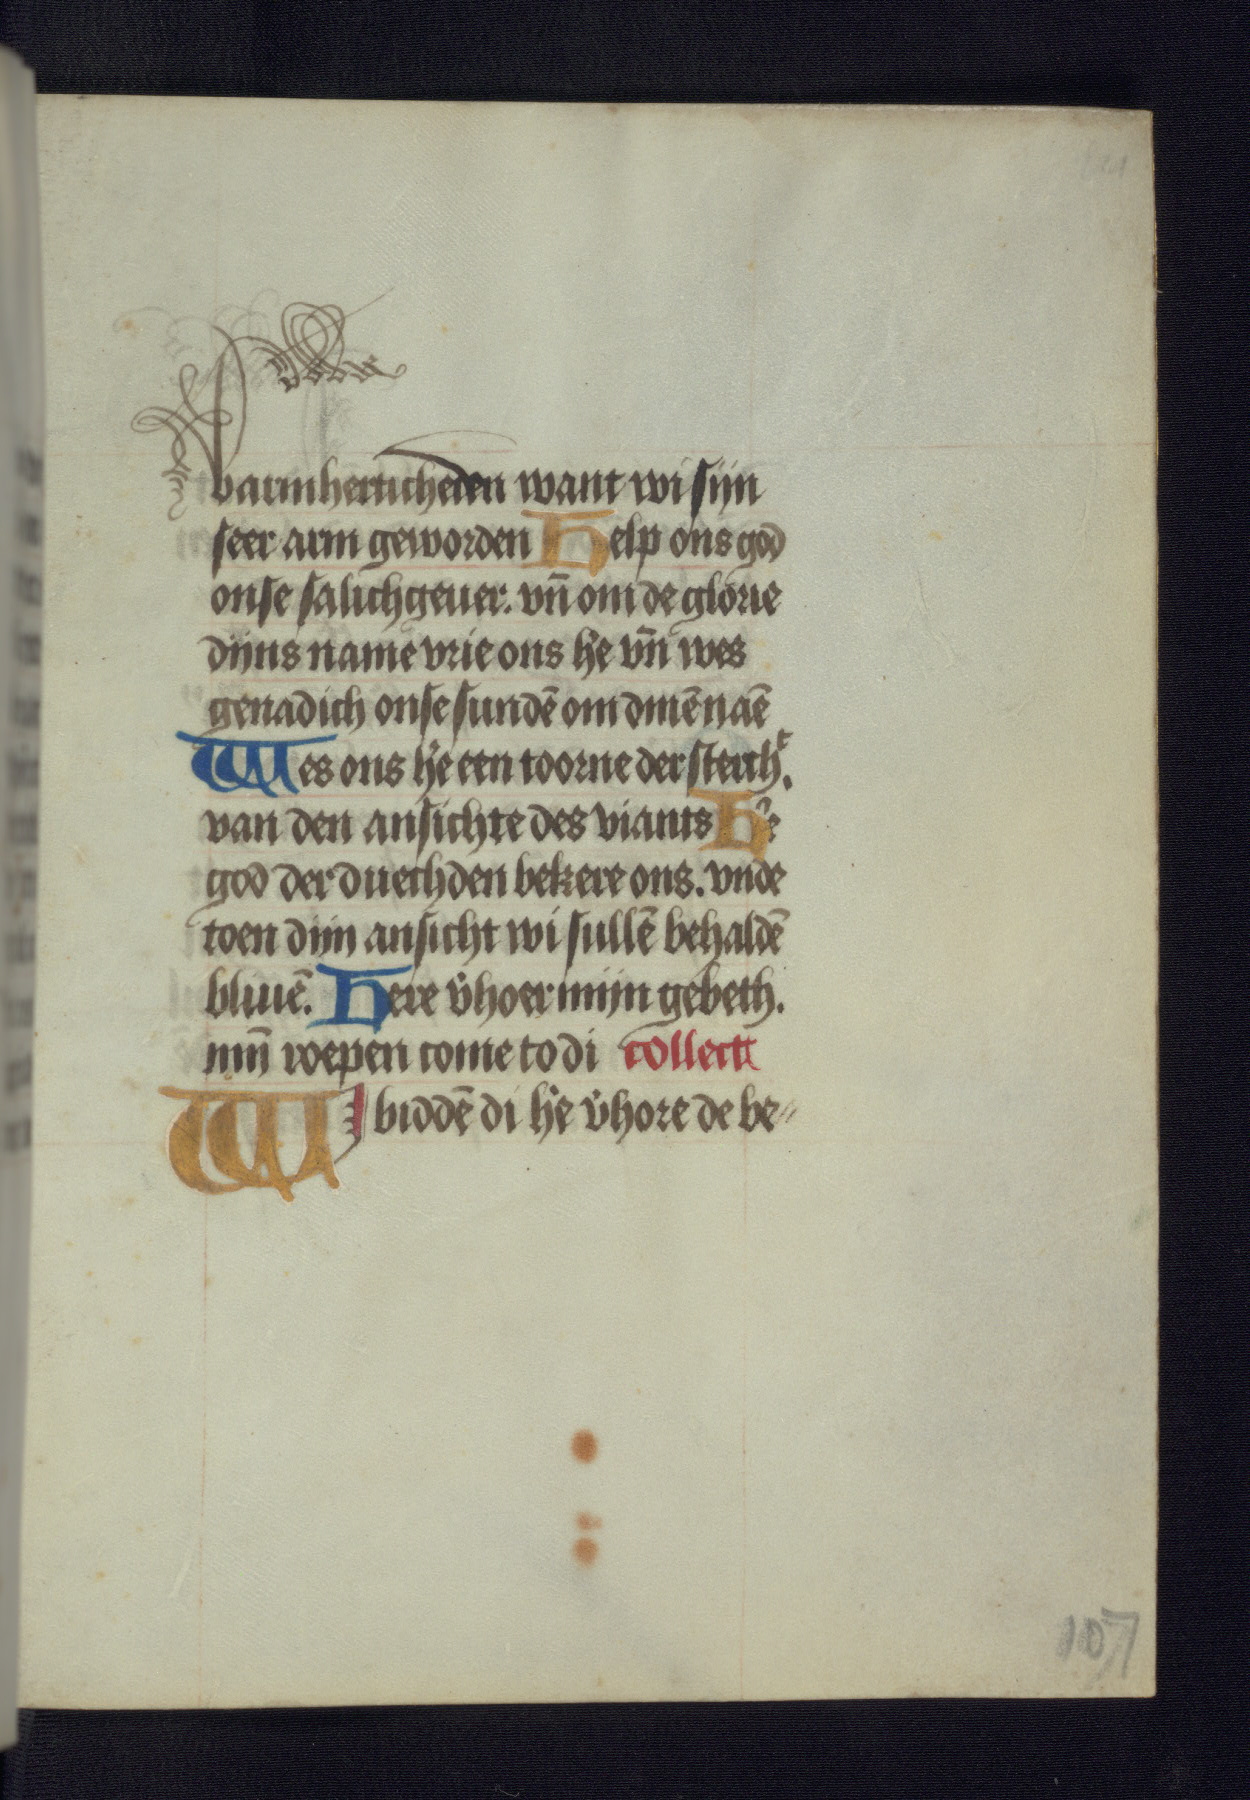 barmherticheden want wi sijn
seer arm geworden Help ons god
onse salichgeuer. vn̄ om de glorie
dijns name vrie ons h'e vn̄ wes
genadich onse sundē om dinē naē
Wes ons h'e een toorne der sterchᵗ.
van den ansichte des viants H'e
god der duechden bekere ons. vnde
toen dijn ansicht wi sullē behaldē
bliuē. Here v'hoer mijn gebeth.
min̄ roepen come to di collectt
WI biddē di h'e v'hore de be〃
107